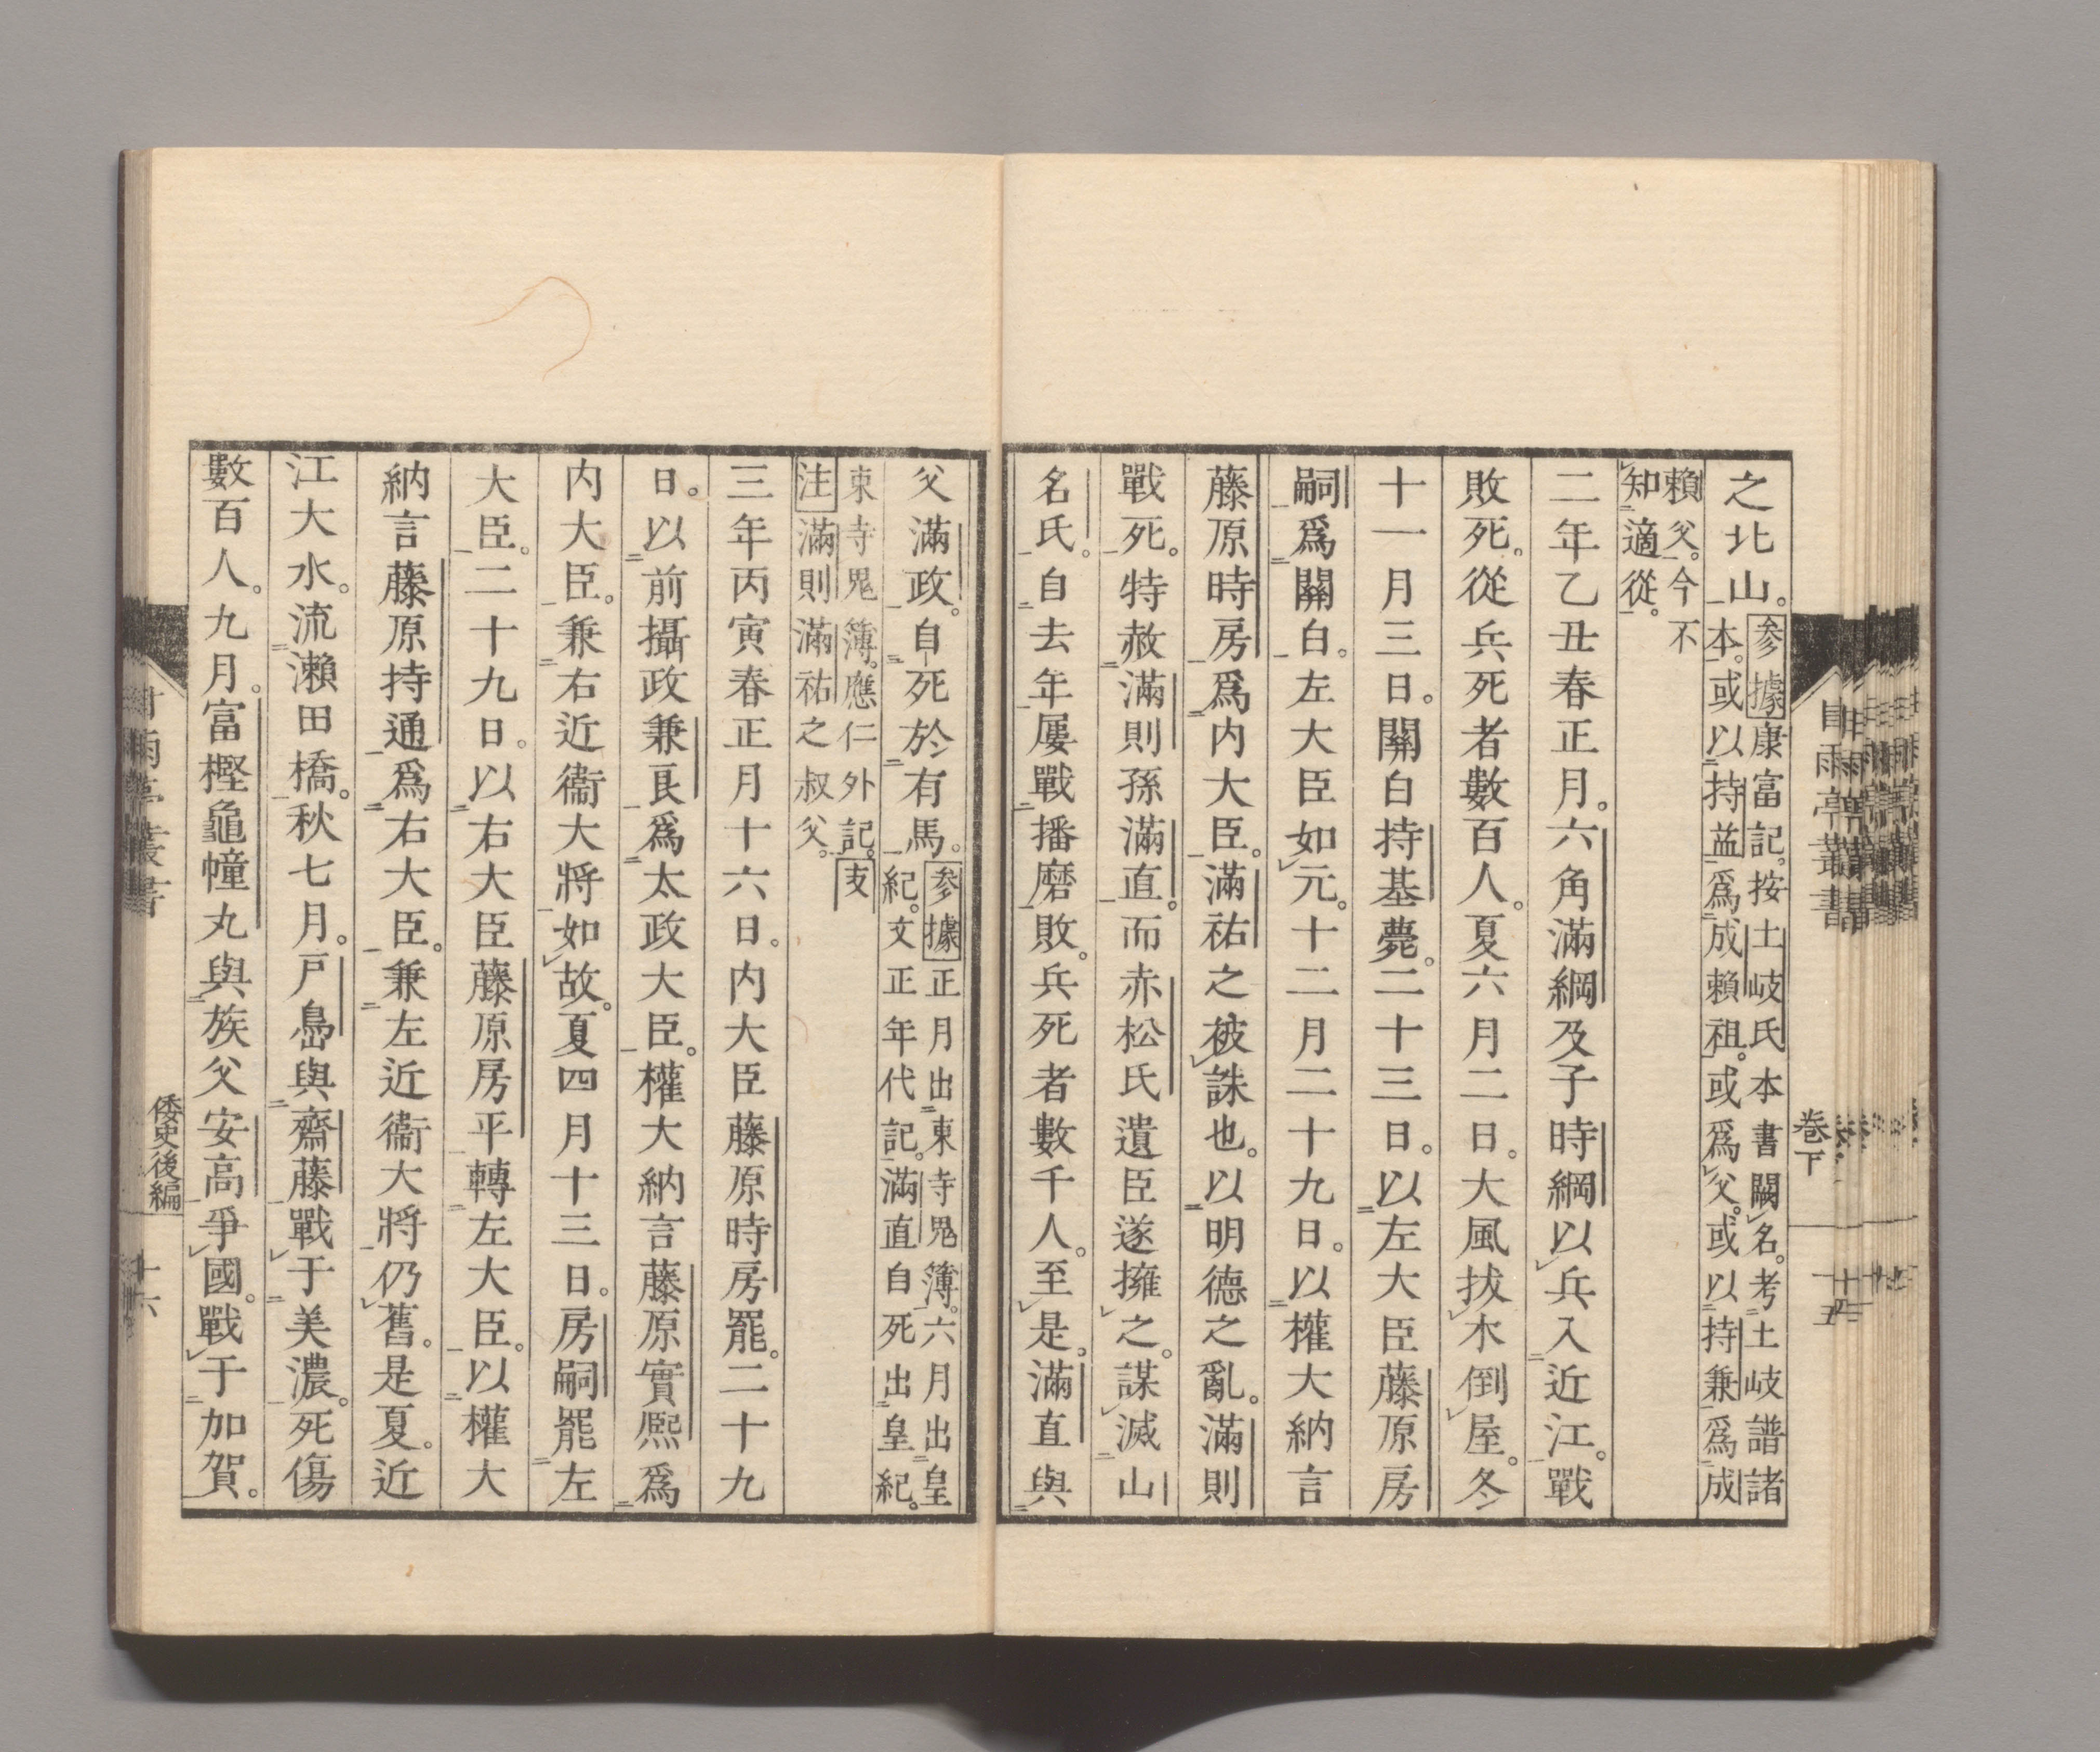 之北山。參據康富記。按土岐氏本書闕名。考土岐譜諸
本。或以持益爲成賴祖。或爲父。或以持兼爲成
賴父。今不
知適從。
二年乙丑春正月。六角滿綱及子時綱以兵入近江。戰
敗死。從兵死者數百人。夏六月二日。大風拔木倒屋。冬
十一月三日。關白持基薨。二十三日。以左大臣藤原房
嗣爲關白。左大臣如元。十二月二十九日。以權大納言
藤原時房爲内大臣。滿祐之被誅也。以明德之亂。滿則
戰死。特赦滿則孫滿直。而赤松氏遺臣遂擁之。謀滅山
名氏。自去年屢戰播磨敗。兵死者數千人。至是。滿直與
卷下
十五
父滿政。自死於有馬。參據正月出東寺鬼簿。六月出皇
紀。文正年代記。滿直自死出皇紀。
東寺鬼簿。應仁外記。支
注滿則滿祐之叔父。
三年丙寅春正月十六日。内大臣藤原時房罷。二十九
日。以前攝政兼良爲太政大臣。權大納言藤原實熙爲
内大臣。兼右近衞大將如故。夏四月十三日。房嗣罷左
大臣。二十九日。以右大臣藤原房平轉左大臣。以權大
納言藤原持通爲右大臣。兼左近衞大將仍舊。是夏。近
江大水。流瀨田橋。秋七月。戸島與齋藤戰于美濃。死傷
數百人。九月。富樫龜幢丸與族父安高爭國。戰于加賀。
甘雨亭叢書
倭史後編
十六